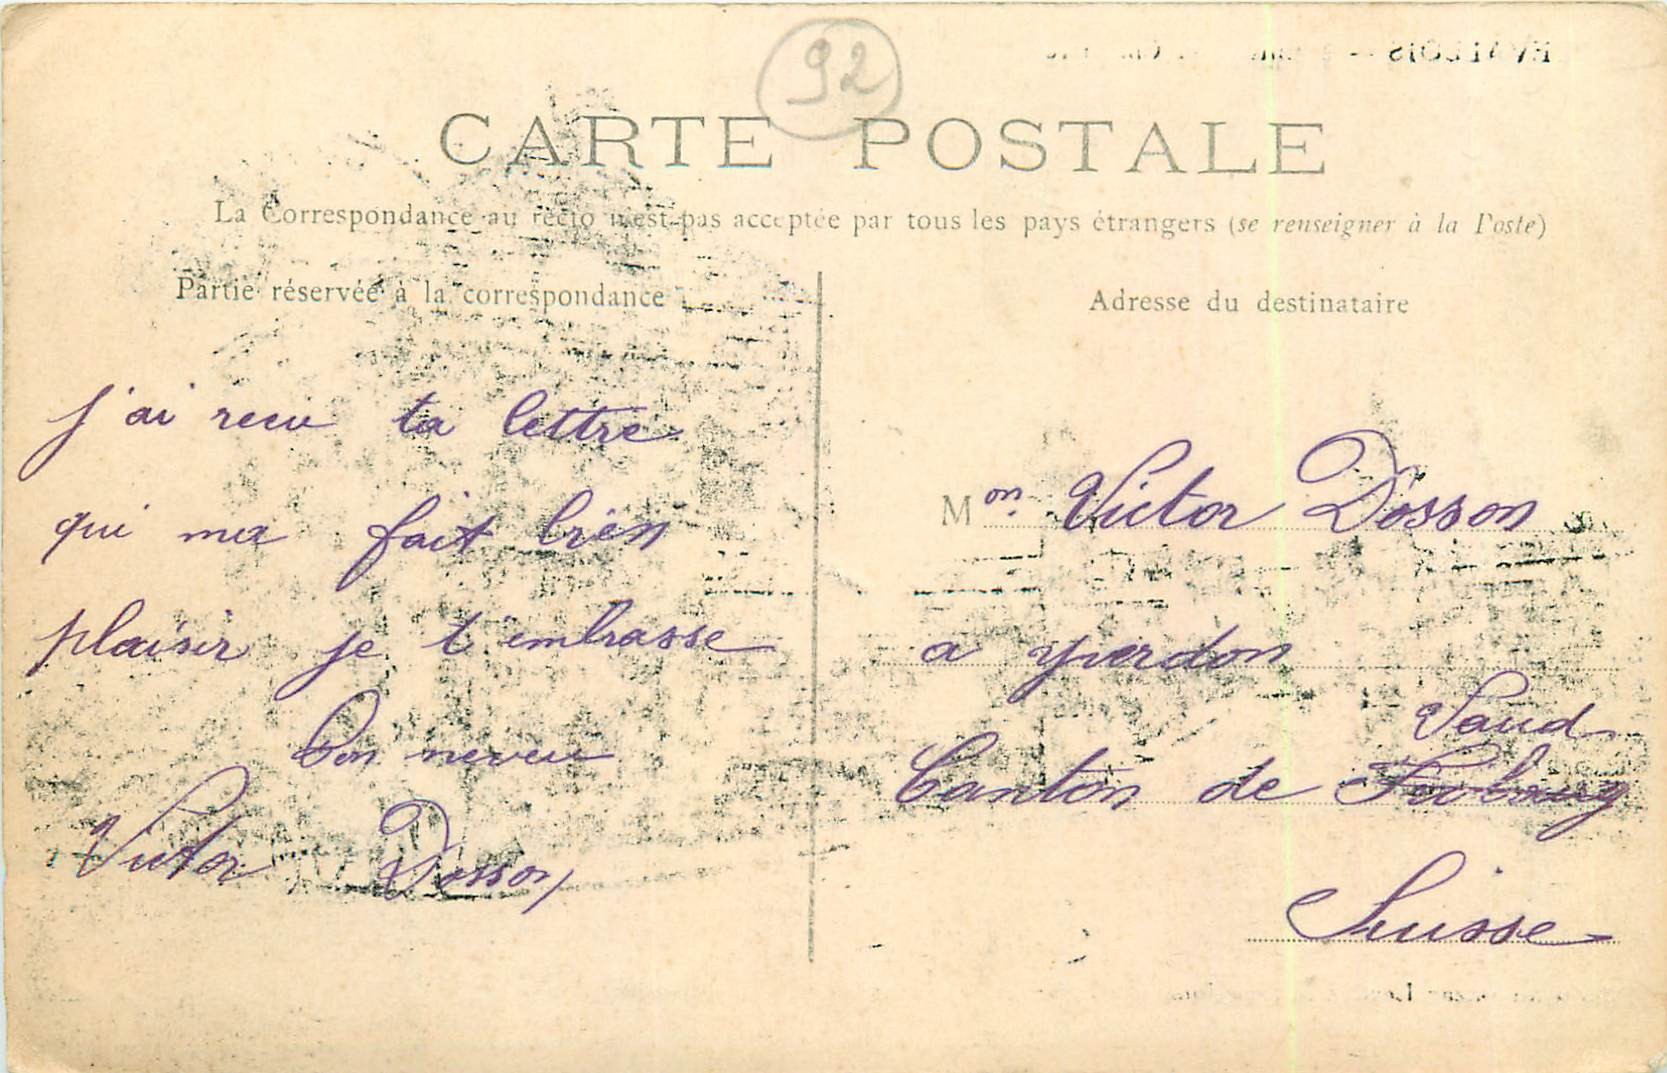 92
CARTE POSTALE
La Correspondance au recto n'est pas acceptée par tous les pays étrangers (se renseigner à la Poste)
Partie réservée à la correspondance
j'ai recu ta lettre
qui ma fait bien
plaisir je t'embrasse
Ton neveu
Victor Dosson
Adresse du destinataire
Mon. Victor Dosson
a yverdon
Vaud
Canton de Fribourg
Suisse